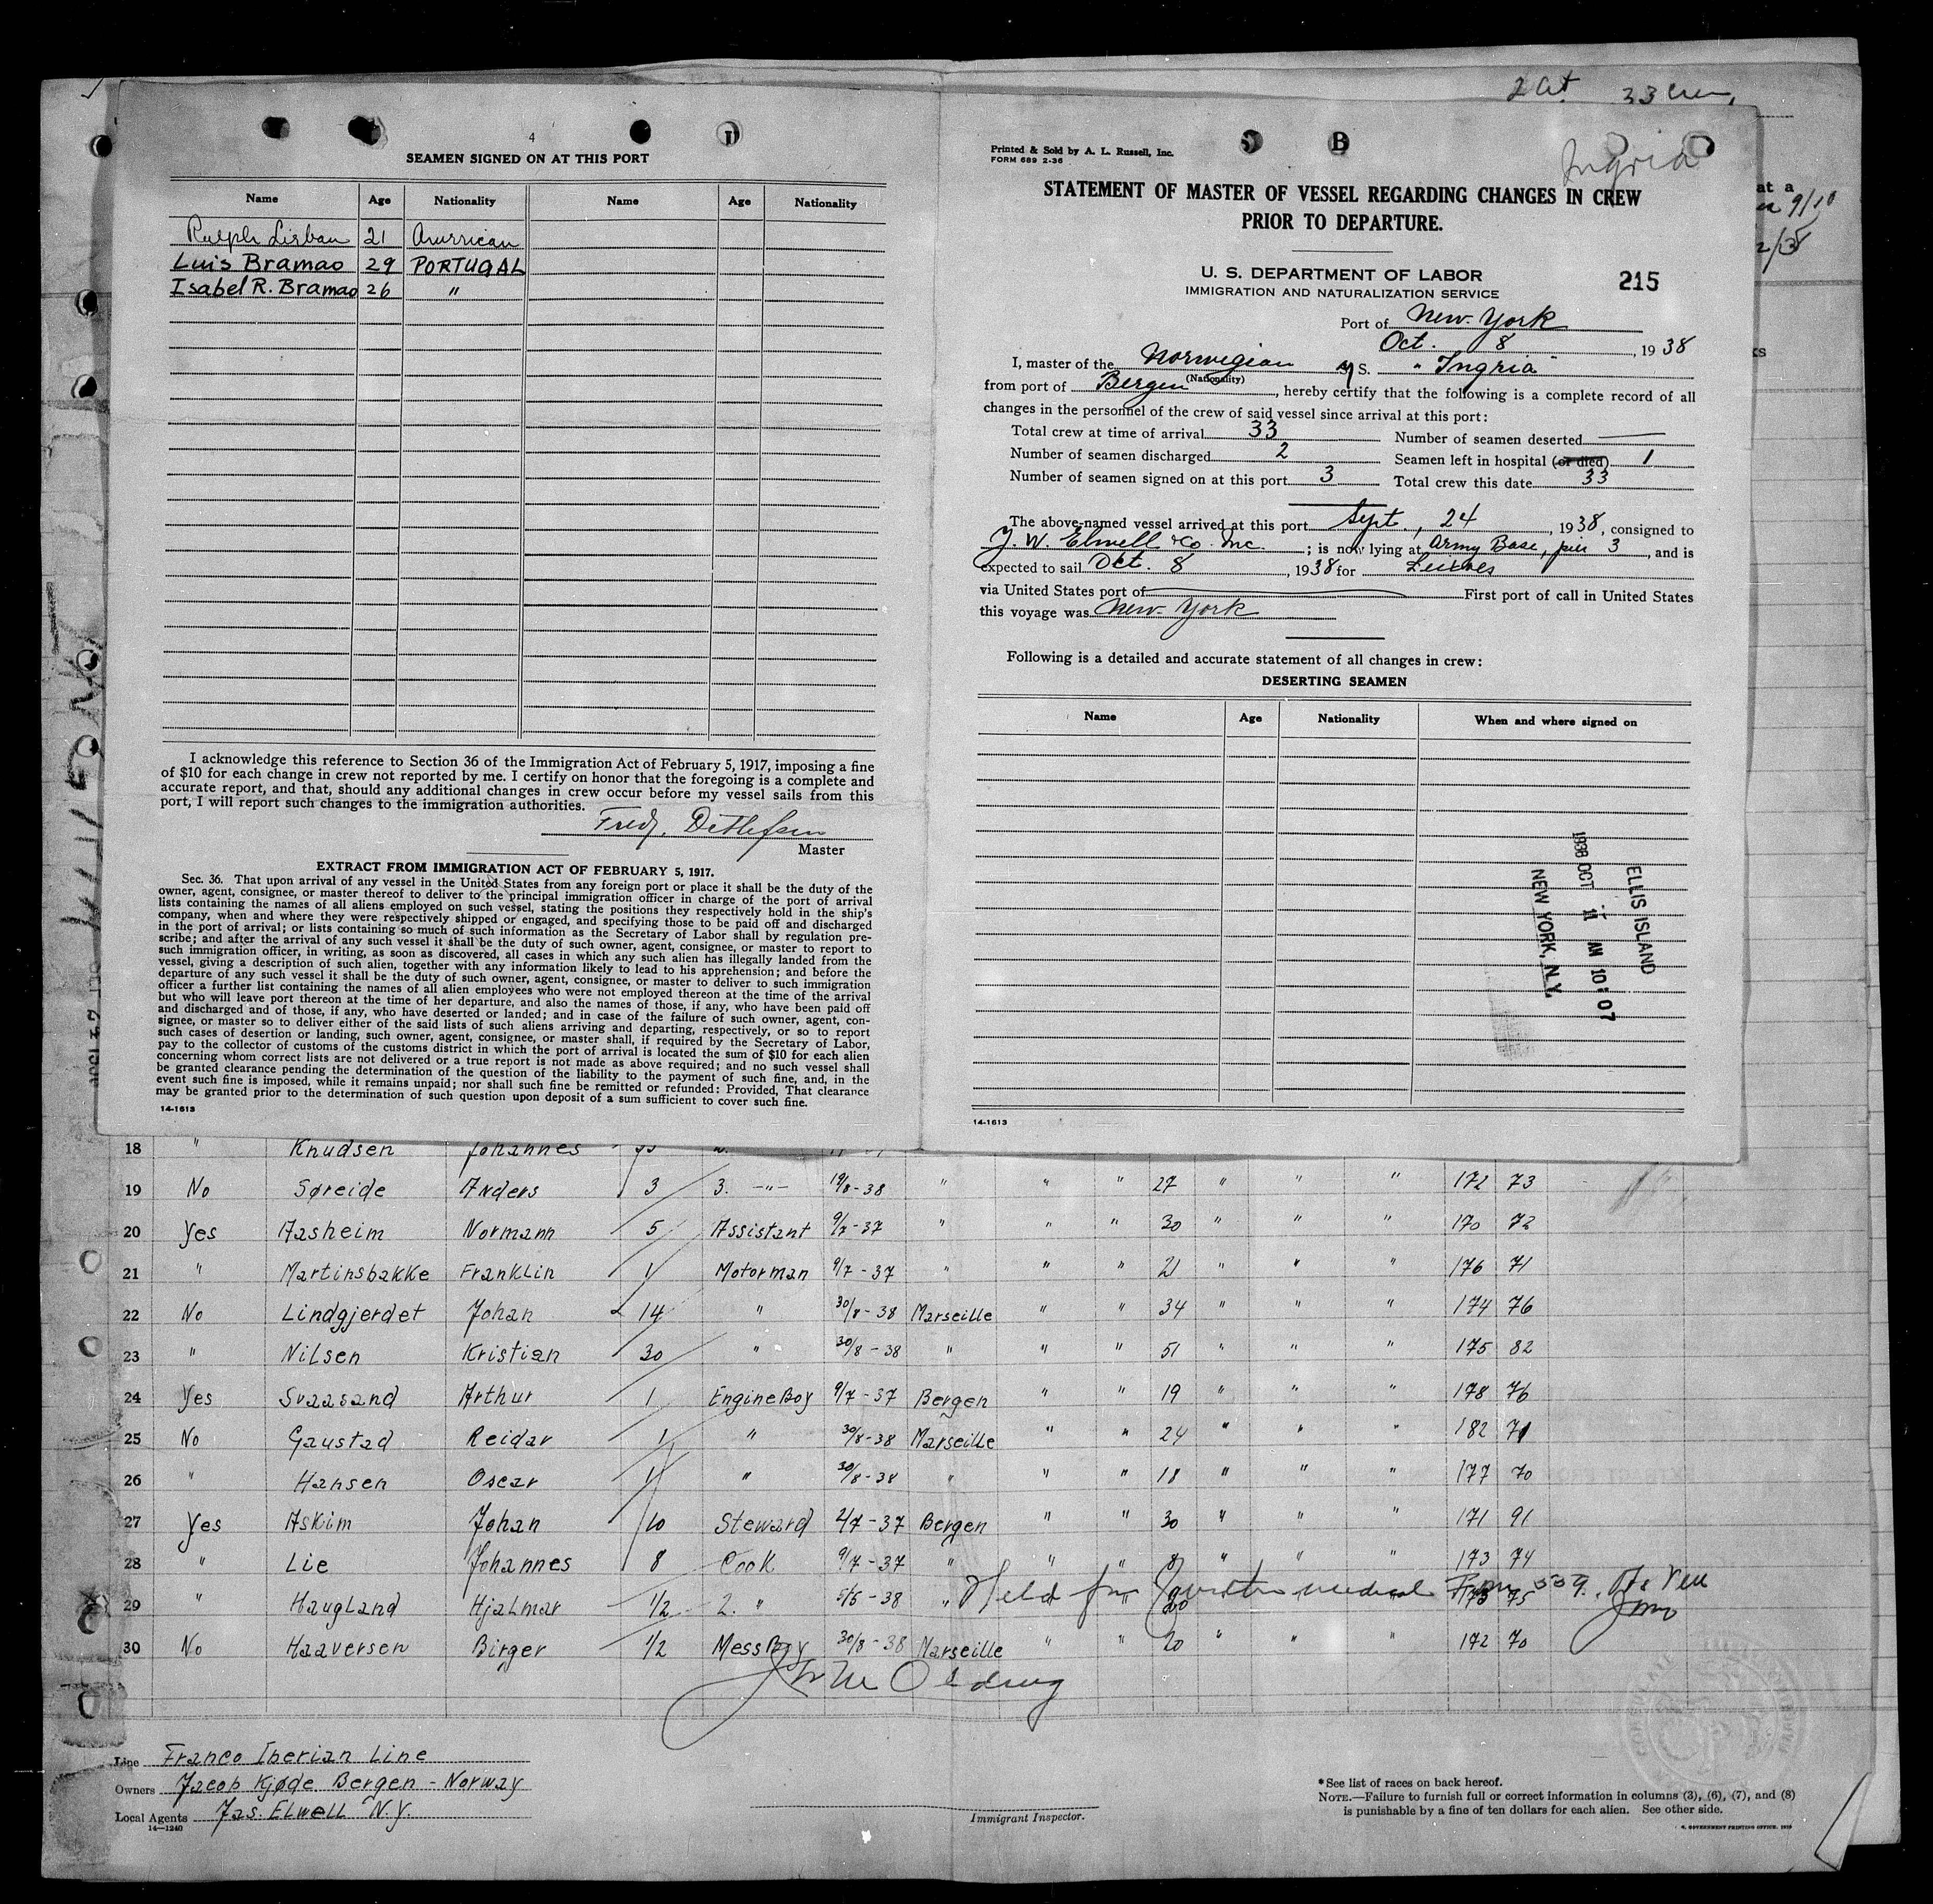 2 at. 33 Crew,
4
SEAMEN SIGNED ON AT THIS PORT
Name Age Nationality Name Age Nationality
Ralph Lisbau 21 American
Luis Bramao 29 PORTUGAL
Isabel R. Bramao 26 "
I acknowledge this reference to Section 36 of the Immigration Act of February 5, 1917, imposing a fine
of $10 for each change in crew not reported by me. I certify on honor that the foregoing is a complete and
accurate report, and that, should any additional changes in crew occur before my vessel sails from this
port, I will report such changes to the immigration authorities.
Fredr. Dethlefsen
Master
EXTRACT FROM IMMIGRATION ACT OF FEBRUARY 5, 1917.
Sec. 36. That upon arrival of any vessel in the United States from any foreign port or place it shall be the duty of the
owner, agent, consignee, or master thereof to deliver to the principal immigration officer in charge of the port of arrival
lists containing the names of all aliens employed on such vessel, stating the positions they respectively hold in the ship's
company, when and where they were respectively shipped or engaged, and specifying those to be paid off and discharged
in the port of arrival; or lists containing so much of such information as the Secretary of Labor shall by regulation pre-
scribe; and after the arrival of any such vessel it shall be the duty of such owner, agent, consignee, or master to report to
such immigration officer, in writing, as soon as discovered, all cases in which any such alien has illegally landed from the
vessel, giving a description of such alien, together with any information likely to lead to his apprehension; and before the
departure of any such vessel it shall be the duty of such owner, agent, consignee, or master to deliver to such immigration
officer a further list containing the names of all alien employees who were not employed thereon at the time of the arrival
but who will leave port thereon at the time of her departure, and also the names of those, if any, who have been paid off
and discharged and of those, if any, who have deserted or landed; and in case of the failure of such owner, agent, con-
signee, or master so to deliver either of the said lists of such aliens arriving and departing, respectively, or so to report
such cases of desertion or landing, such owner, agent, consignee, or master shall, if required by the Secretary of Labor,
pay to the collector of customs of the customs district in which the port of arrival is located the sum of $10 for each alien
concerning whom correct lists are not delivered or a true report is not made as above required; and no such vessel shall
be granted clearance pending the determination of the question of the liability to the payment of such fine, and, in the
event such fine is imposed, while it remains unpaid; nor shall such fine be remitted or refunded: Provided, That clearance
may be granted prior to the determination of such question upon deposit of a sum sufficient to cover such fine.
14-1613
Printed & Sold by A. L. Russell, Inc.
FORM 689 2-36
Ingria
STATEMENT OF MASTER OF VESSEL REGARDING CHANGES IN CREW
PRIOR TO DEPARTURE.
U. S. DEPARTMENT OF LABOR
IMMIGRATION AND NATURALIZATION SERVICE
215
Port of New York
Oct. 8, 1938
I, master of the Norwegian M S. "Ingria"
(Nationality)
from port of Bergen, hereby certify that the following is a complete record of all
changes in the personnel of the crew of said vessel since arrival at this port:
Total crew at time of arrival 33 Number of seamen deserted —
Number of seamen discharged 2 Seamen left in hospital (or died) 1
Number of seamen signed on at this port 3 Total crew this date 33
The above-named vessel arrived at this port Sept., 24, 1938, consigned to
J. W. Elwell & Co. Inc.; is now lying at Army Base, pier 3, and is
expected to sail Oct. 8, 1938 for Leixoes
via United States port of First port of call in United States
this voyage was New York
Following is a detailed and accurate statement of all changes in crew:
DESERTING SEAMEN
Name Age Nationality When and where signed on
ELLIS ISLAND
1938 OCT 11 AM 10:07
NEW YORK, N.Y.
14-1613
18 " Knudsen Johannes
19 No Søreide Anders 3 3. -"- 19/8-38 " " " 27 " " " 172 73
20 Yes Aasheim Normann 5 Assistant 9/7-37 " " 30 " " " 170 72
21 " Martinsbakke Franklin 1 Motorman 9/7-37 " " " 21 " " " 176 71
22 No Lindgjerdet Johan 14 " 30/8-38 Marseille " " 34 " " " 174 76
23 " Nilsen Kristian 30 " 30/8-38 " " " 51 " " " 175 82
24 Yes Svaasand Arthur 1 Engine Boy 9/7-37 Bergen " " 19 " " " 178 76
25 No Gaustad Reidar 1 " 30/8-38 Marseille " " 24 " " " 182 71
26 " Hansen Oscar 1 " 30/8-38 " " " 18 " " " 177 70
27 Yes Askim Johan 10 Steward 2/7-37 Bergen " " 30 " " " 171 91
28 " Lie Johannes 8 Cook 9/7-37 " " " " " " 173 74
29 " Haugland Hjalmar 1/2 2. " 5/5-38 " Held for further medical 20 175 75
30 No Haaversen Birger 1/2 Mess Boy 30/8-38 Marseille " " 20 " " " 172 70
Line Franco Iberian Line
Owners Jacob Kjøde Bergen - Norway
Local Agents Jas. Elwell N.Y.
14-1240
Immigrant Inspector.
*See list of races on back hereof.
NOTE.—Failure to furnish full or correct information in columns (3), (6), (7), and (8)
is punishable by a fine of ten dollars for each alien. See other side.